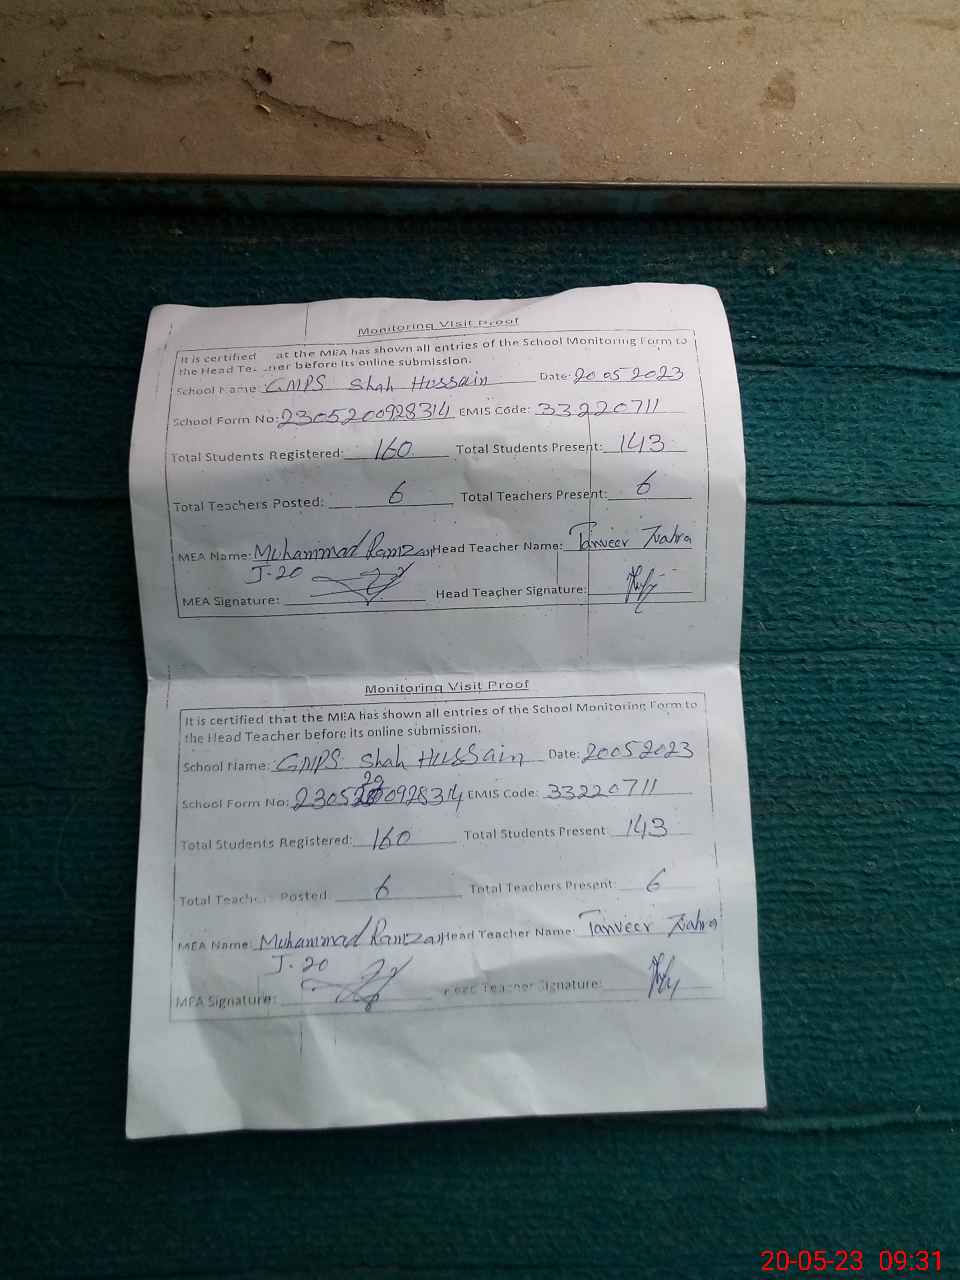 Monitoring Visit Proof
It is certified at the MEA has shown all entries of the School Monitoring Form to
the Head Te ner before its online submission.
School Name: GMPS Shah Hussain Date: 20 05 2023
School Form No: 2305200928314 EMIS Code: 33220711
Total Students Registered: 160 Total Students Present: 143
Total Teachers Posted: 6 Total Teachers Present: 6
MEA Name: Muhammad Ramzan Head Teacher Name: Tanveer Zahra
J-20
MEA Signature: Head Teacher Signature:
Monitoring Visit Proof
It is certified that the MEA has shown all entries of the School Monitoring Form to
the Head Teacher before its online submission.
School Name: GMPS Shah Hussain Date: 20052023
School Form No: EMIS Code: 33220711
Total Students Registered: 160 Total Students Present: 143
Total Teachers Posted: 6 Total Teachers Present: 6
MEA Name: Muhammad Ramzan Head Teacher Name: Tanveer Zahra
J-20
MEA Signature: Head Teacher Signature:
20-05-23 09:31